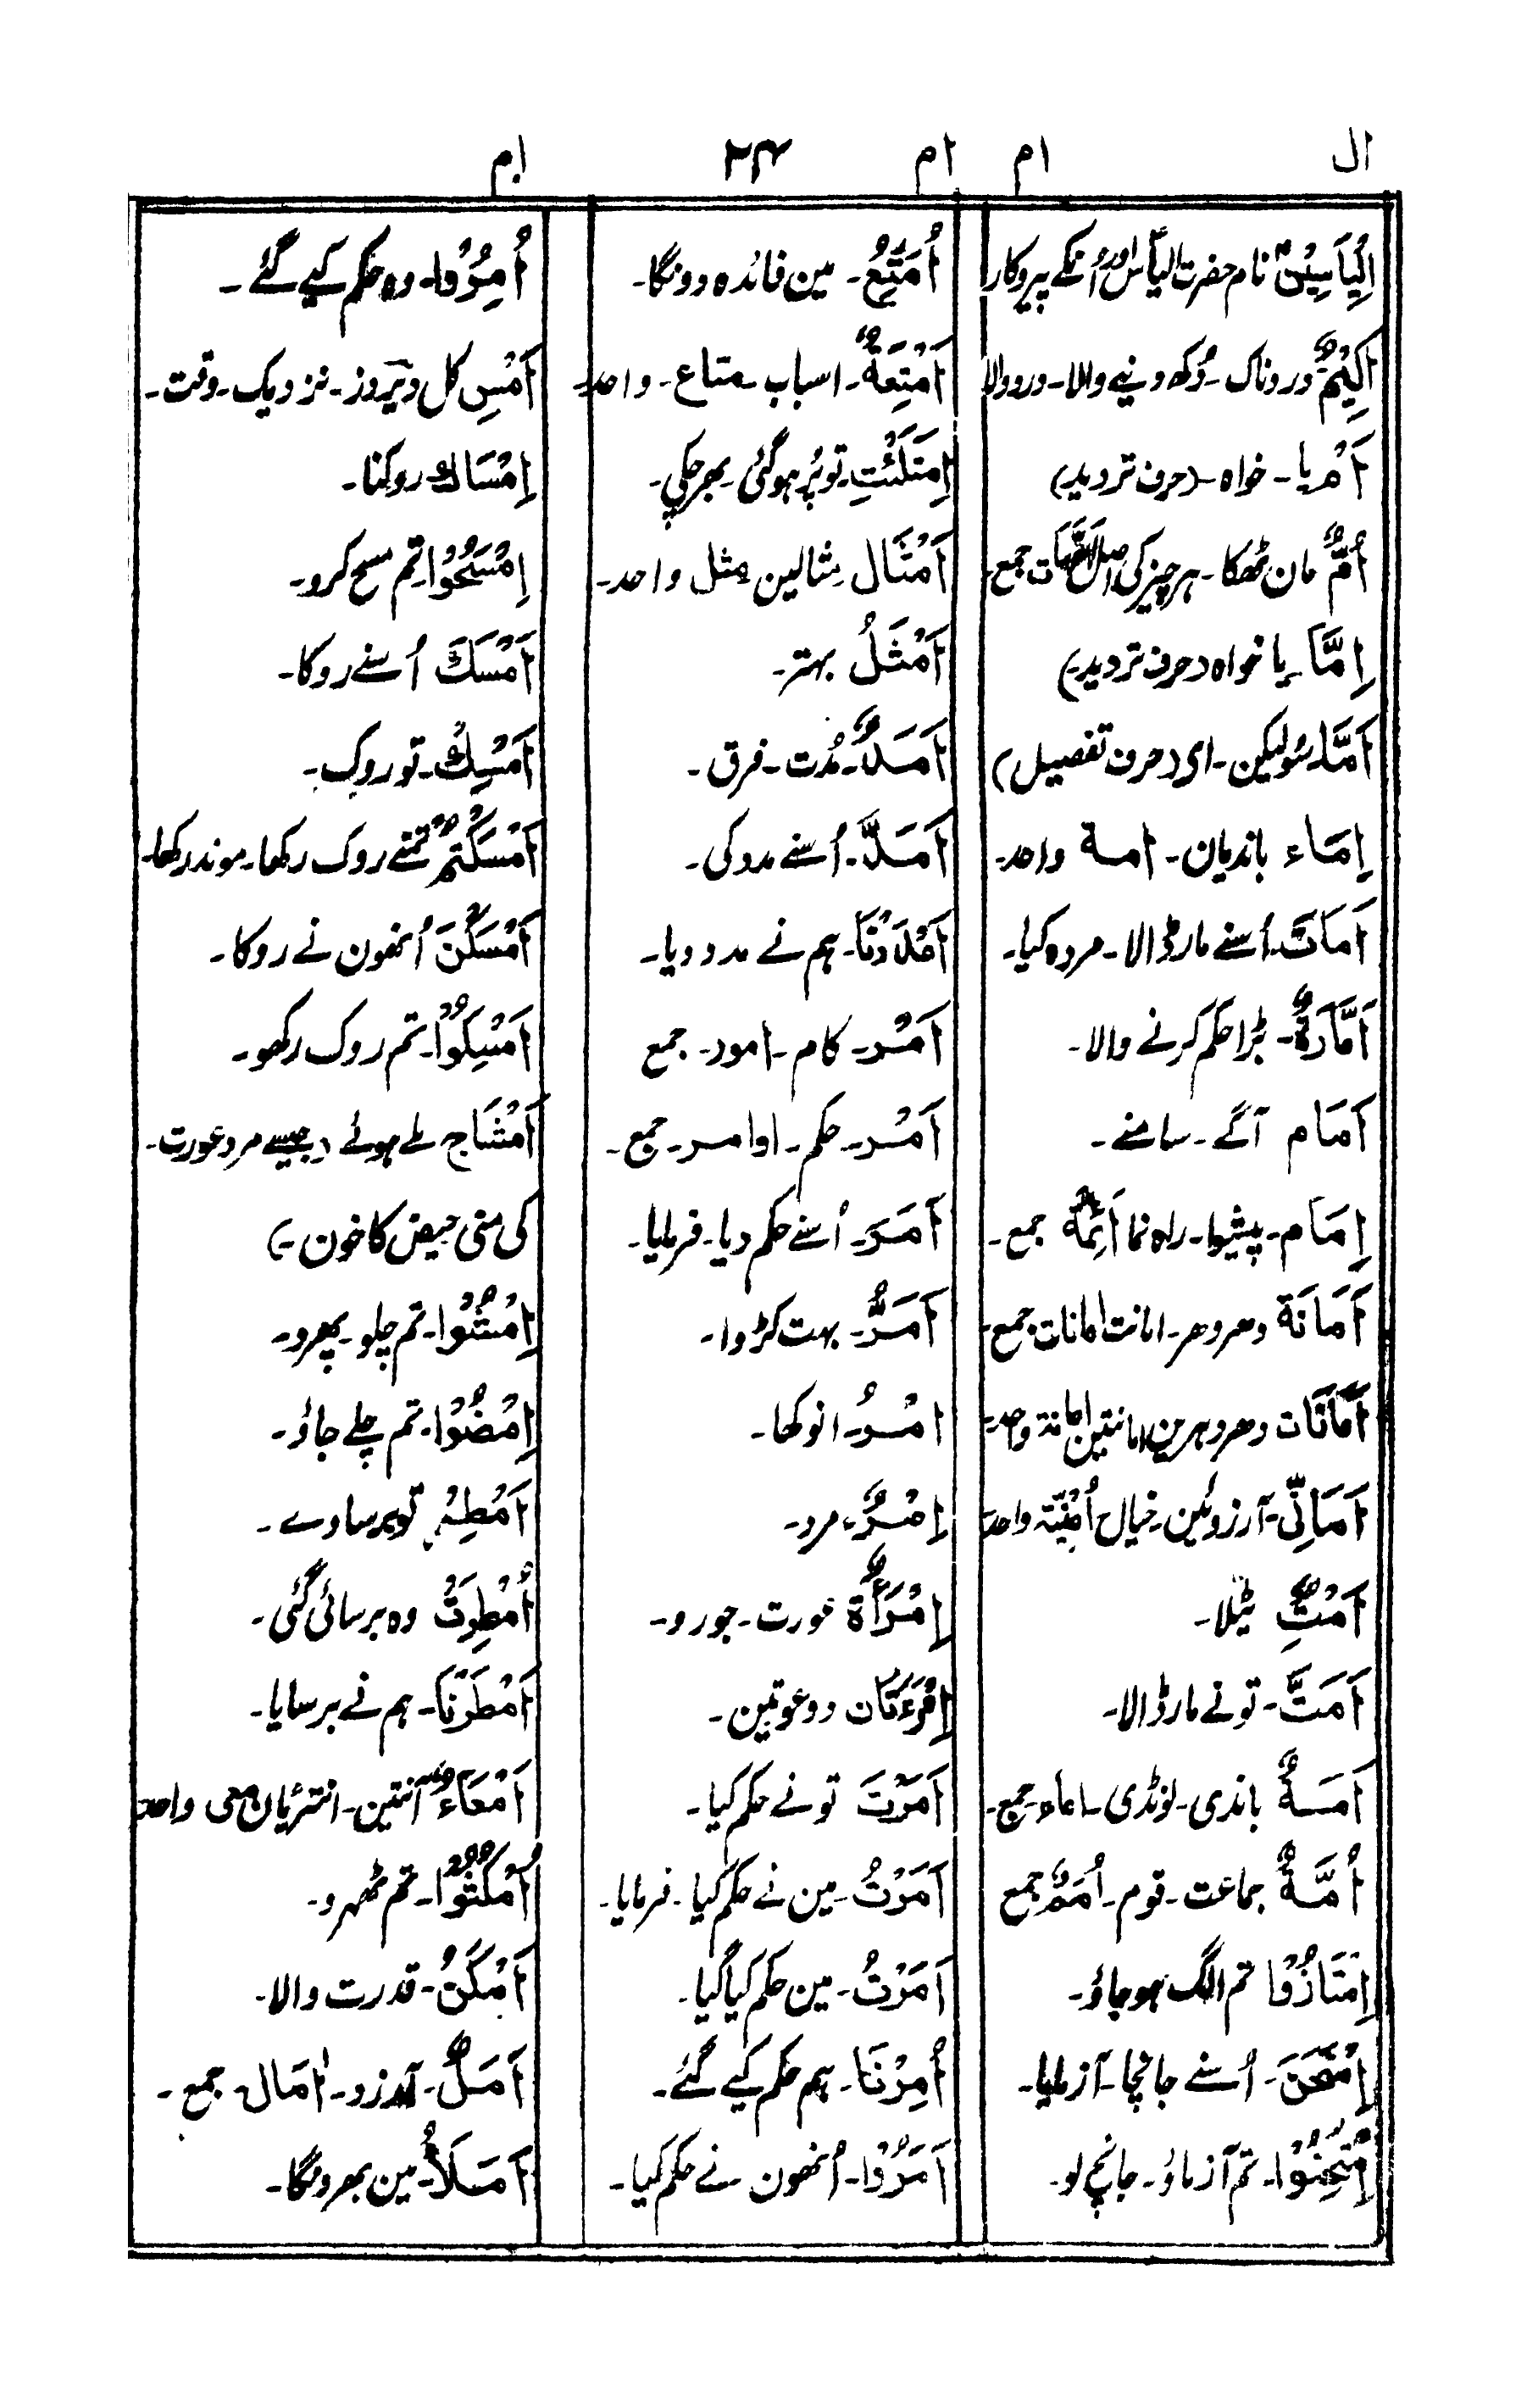 ال ام ام ۲۴ ام
اِلْيَاسِيْنَ نام حضرت الیاس اور اُنکے پیروکار
اَلِيْمٌ دردناک۔ دُکھ دینے والا۔ درد والا
اَمْ یا۔ خواہ۔ (حرف تردید)
اُمٌّ مان ٹھکا۔ ہر چیز کی اصل اُمَّهَات جمع۔
اِمَّا۔ یا خواہ (حرف تردید۔)
اَمَّا۔ سو لیکن۔ ای (حرف تفصیل)
اِمَاء باندیان۔ امة واحد۔
اَمَاتَ۔ اُسنے مار ڈالا۔ مردہ کیا۔
اَمَّارَةٌ۔ بڑا حکم کرنے والا۔
اَمَام آگے۔ سامنے۔
اِمَام۔ پیشوا۔ راہ نما اَئِمَّة جمع۔
اَمَانَة دھروھر۔ امانت امانات جمع۔
اَمَانَات دھروہرین امانتین امانة واحد۔
اَمَانِّى۔ آرزوئین۔ خیال اُمْنِيَّة واحد۔
اَمْتٌ ٹیلا۔
اَمَتَّ۔ تونے مار ڈالا۔
اَمَةٌ باندی۔ لونڈی۔ اماء۔ جمع۔
اُمَّةٌ جماعت۔ قوم۔ اُمَمٌ جمع
اِمْتَازُوْا تم الگ ہو جاؤ۔
اِمْتَحَنَ۔ اُسنے جانچا۔ آزمایا۔
اِمْتَحِنُوْا۔ تم آزماؤ۔ جانچ لو۔
اُمَتِّعُ۔ مین فائدہ دونگا۔
اَمْتِعَةٌ۔ اسباب۔ متاع۔ واحد۔
اِمْتَلَئْتِ۔ تو پُر ہو گئی۔ بھر چکی۔
اَمْثَال مثالین مثل واحد۔
اَمْثَلُ بہتر۔
اَمَدٌ۔ مُدت۔ فرق۔
اَمَدَّ۔ اُسنے مدد کی۔
اَمْدَدْنَا۔ ہم نے مدد دیا۔
اَمْر۔ کام۔ امور۔ جمع
اَمْر۔ حکم۔ اوامر۔ جمع۔
اَمَرَ۔ اُسنے حکم دیا۔ فرمایا۔
اَمَرُّ۔ بہت کڑوا۔
امْرُ۔ انوکھا۔
اِمْرٌء۔ مرد۔
اِمْرَأَةٌ عورت۔ جورو۔
اِمْرَءَتَان دو عورتین۔
اَمَرْتَ تو نے حکم کیا۔
اَمَرْتُ۔ مین نے حکم کیا۔ فرمایا۔
اَمَرْتُ۔ مین حکم کیا گیا۔
اُمِرْنَا۔ ہم حکم کیے گئے۔
اَمَرُوْا۔ اُنھون نے حکم کیا۔
اُمِرُوْا۔ وہ حکم کیے گئے۔
اَمْسِ کل دیروز۔ نزدیک۔ وقت۔
اِمْسَاك۔ روکنا۔
اِمْسَحُوْا۔ تم مسح کرو۔
اَمْسَكَ اُسنے روکا۔
اَمْسِكْ۔ تو روک۔
اَمْسَكْتُمْ تمنے روک رکھا۔ موند رکھا۔
اَمْسَكْنَ اُنھون نے روکا۔
اَمْسِكُوْا۔ تم روک رکھو۔
اَمْشَاج ملے ہوئے (جیسے مرد عورت۔
کی منی حیض کا خون۔)
اِمْشُوْا۔ تم چلو۔ پھرو۔
اِمْضُوْا۔ تم چلے جاؤ۔
اَمْطِرْ تو برساوے۔
اُمْطِرَتْ وہ برسائی گئی۔
اَمْطَرْنَا۔ ہم نے برسایا۔
اَمْعَاء آنتین۔ انتڑیان معی واحد
اُمْكُثُوْا۔ تم ٹھہرو۔
اَمْكَنُ۔ قدرت والا۔
اَمَلٌ۔ آرزو۔ اٰمَال۔ جمع۔
اَمْلَأُ۔ مین بھرونگا۔